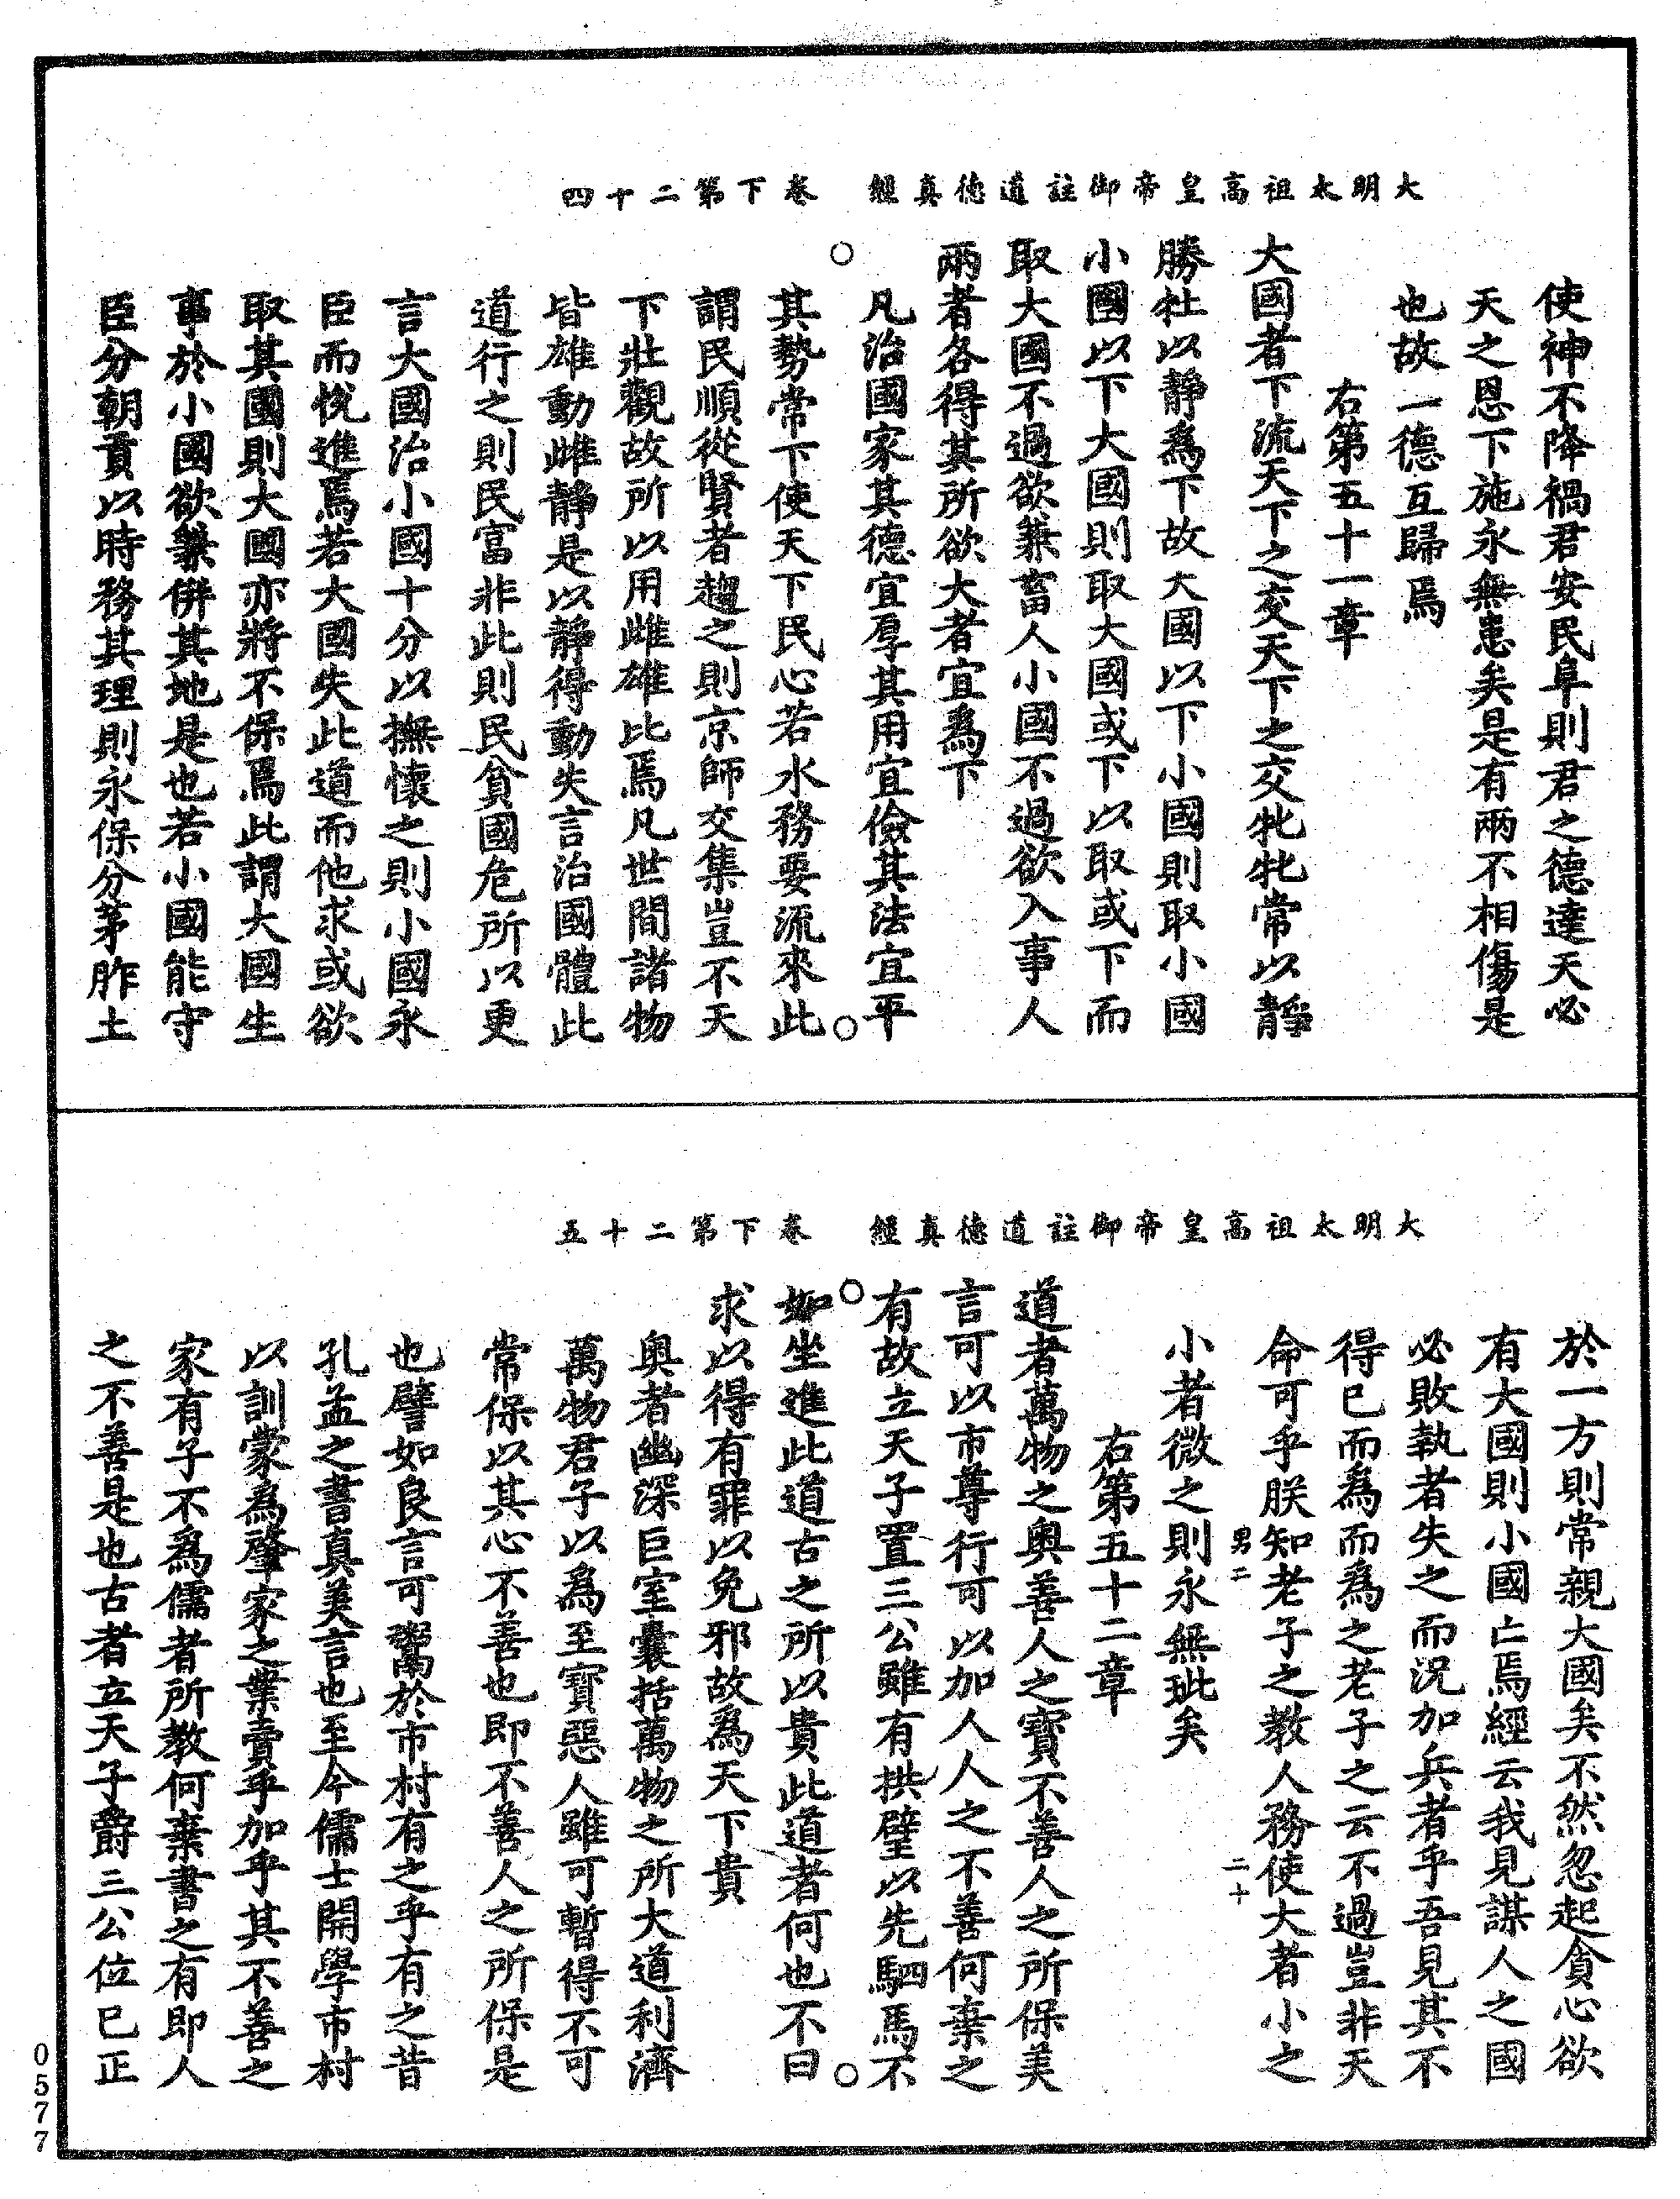 大明太祖高皇帝御註道德真經　卷下第二十四
使神不降禍君安民阜則君之德達天必
天之恩下施永無患矣是有兩不相傷是
也故一德互歸焉
右第五十一章
大國者下流天下之交天下之交牝牝常以靜
勝牡以靜為下故大國以下小國則取小國
小國以下大國則取大國或下以取或下而
取大國不過欲兼畜人小國不過欲入事人
兩者各得其所欲大者宜為下
凡治國家其德宜厚其用宜儉其法宜平
其勢常下使天下民心若水務要流來此
謂民順從賢者趨之則京師交集豈不天
下壯觀故所以用雌雄比焉凡世間諸物
皆雄動雌靜是以靜得動失言治國體此
道行之則民富非此則民貧國危所以更
言大國治小國十分以撫懷之則小國永
臣而悅進焉若大國失此道而他求或欲
取其國則大國亦將不保焉此謂大國生
事於小國欲兼併其地是也若小國能守
臣分朝貢以時務其理則永保分茅胙土
大明太祖高皇帝御註道德真經　卷下第二十五
於一方則常親大國矣不然忽起貪心欲
有大國則小國亡焉經云我見謀人之國
必敗執者失之而況加兵者乎吾見其不
得已而為而為之老子之云不過豈非天
命可乎朕知老子之教人務使大者小之
男二　二十
小者微之則永無玼矣
右第五十二章
道者萬物之奧善人之寶不善人之所保美
言可以市尊行可以加人人之不善何棄之
有故立天子置三公雖有拱璧以先駟馬不
如坐進此道古之所以貴此道者何也不曰
求以得有罪以免邪故為天下貴
奧者幽深巨室囊括萬物之所大道利濟
萬物君子以為至寶惡人雖可暫得不可
常保以其心不善也即不善人之所保是
也譬如良言可鬻於市村有之乎有之昔
孔孟之書真美言也至今儒士開學市村
以訓蒙為肇家之業賣乎加乎其不善之
家有子不為儒者所教何棄書之有即人
之不善是也古者立天子爵三公位已正
0577